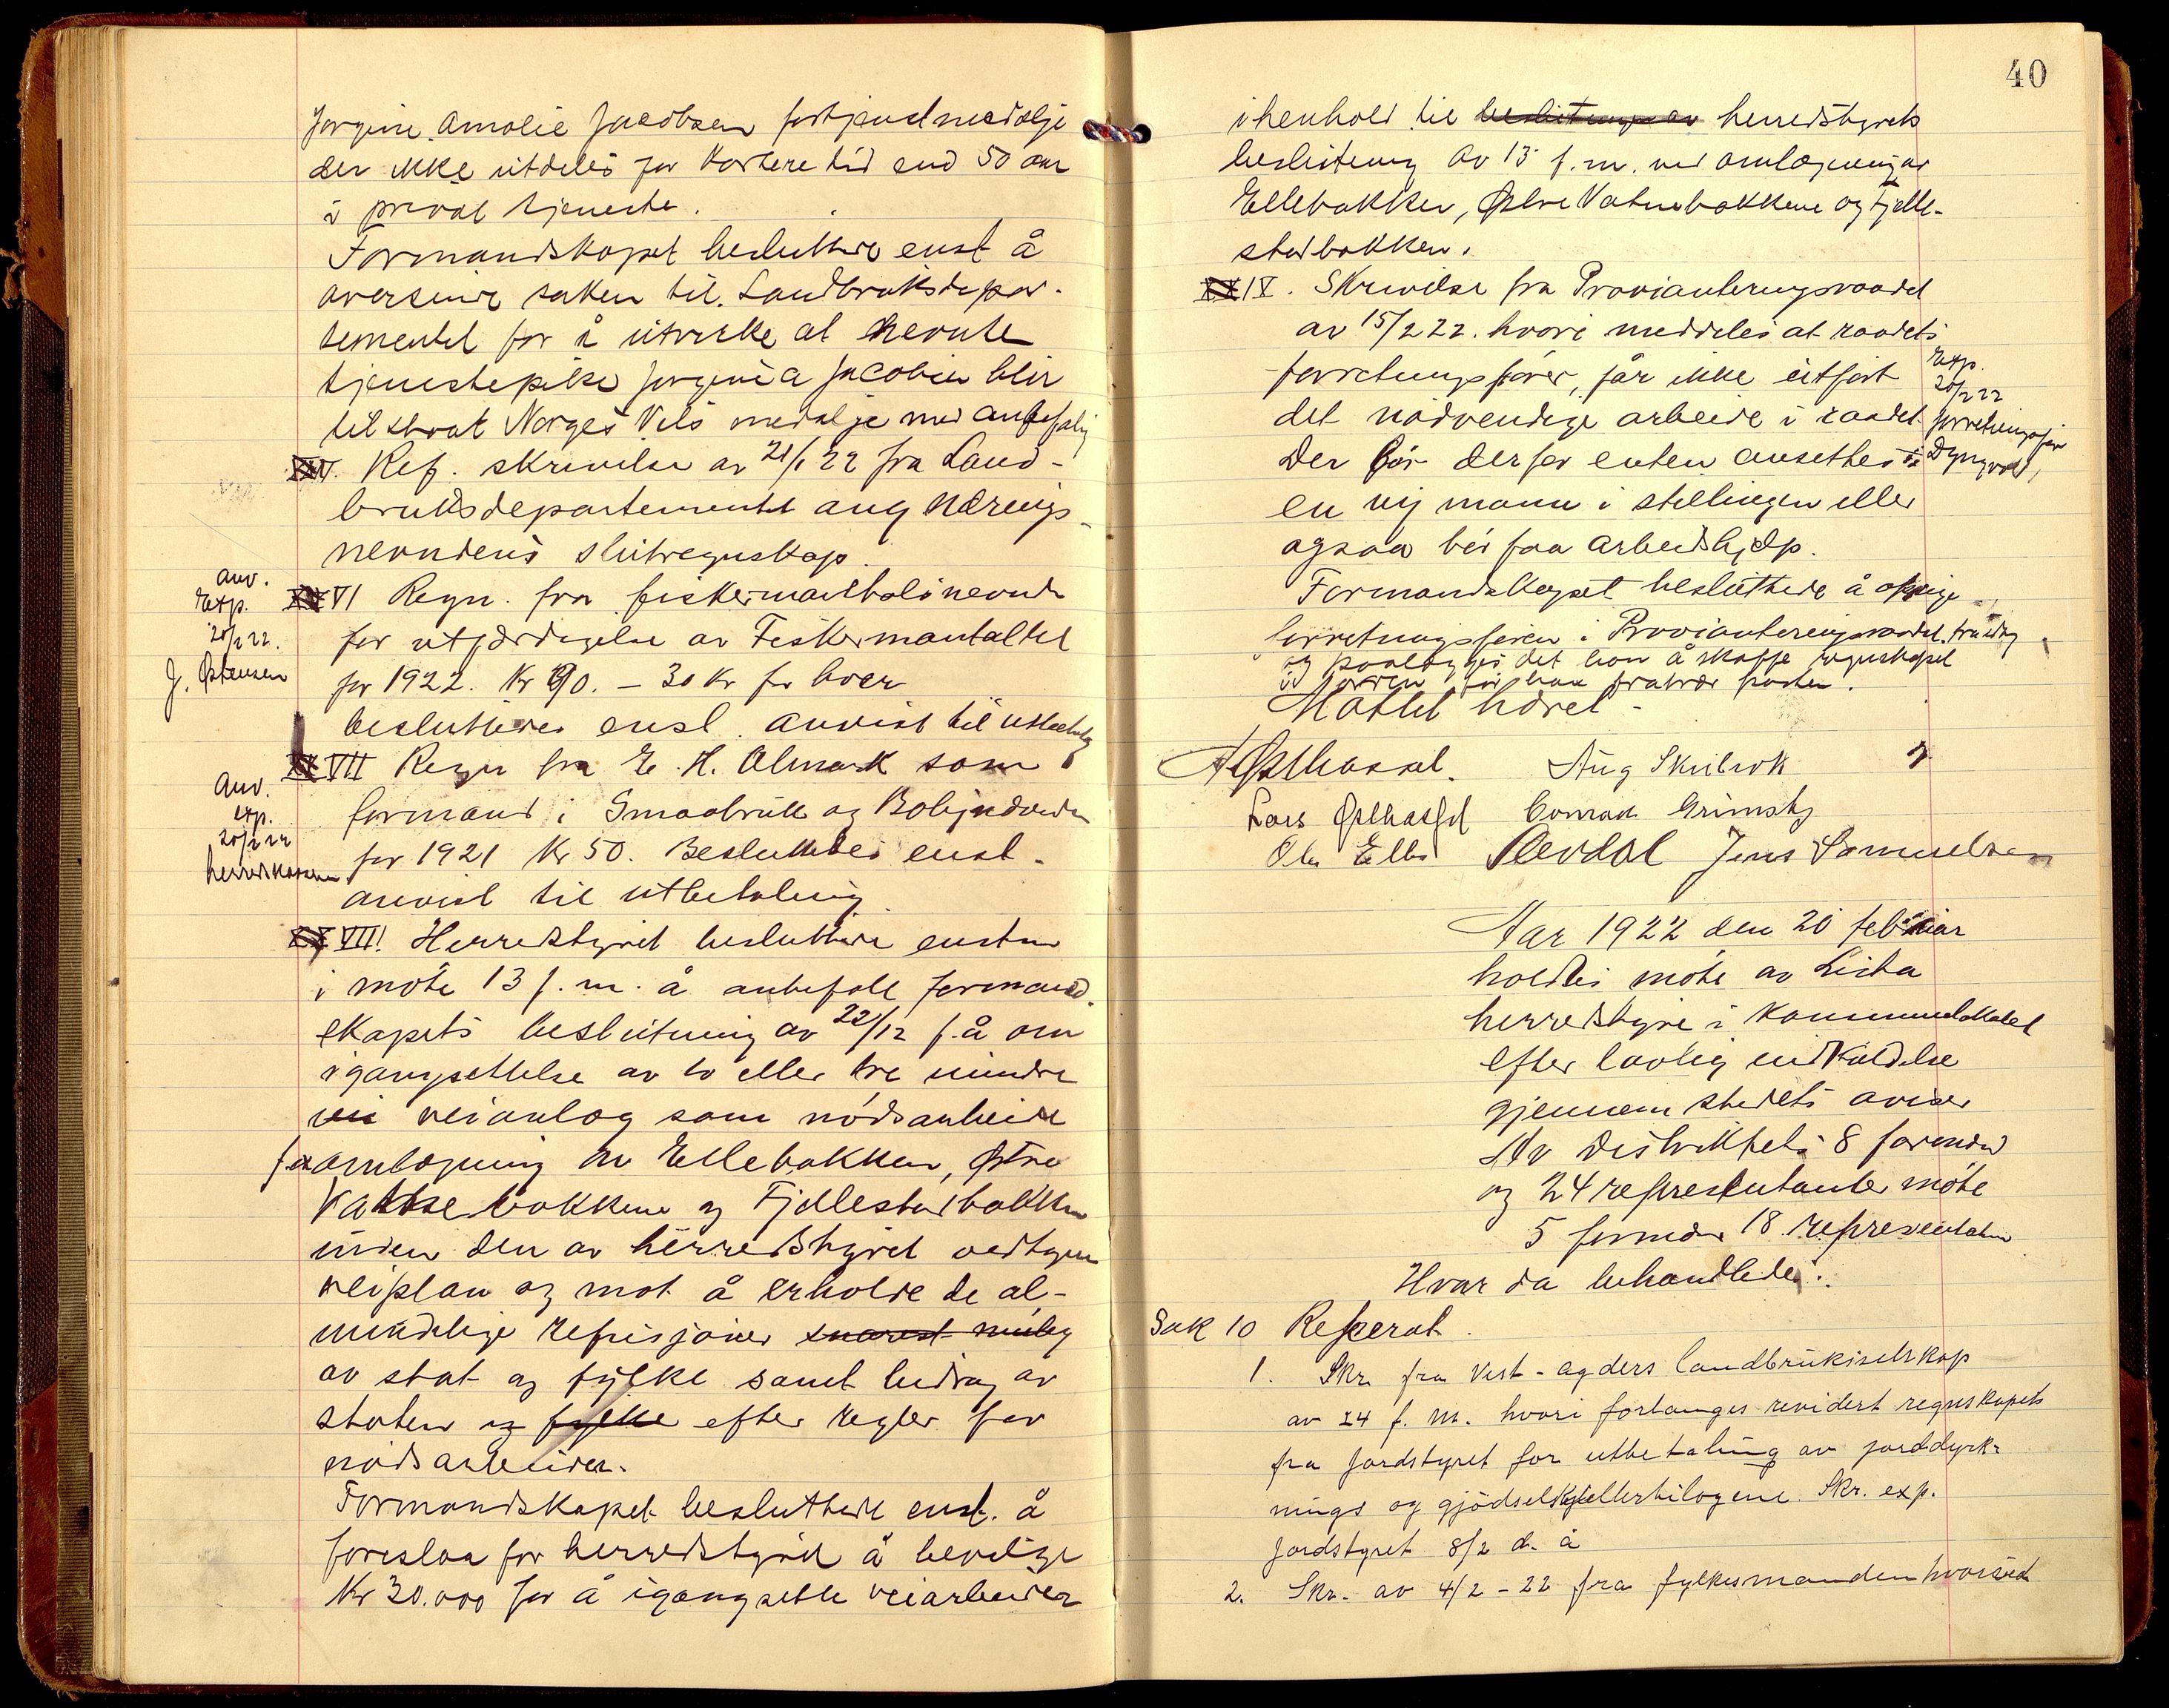 Jorgine Amalie Jacobsen fortjenstmedalje
der ikke utdeles for kortere tid end 50 aar
i privat tjeneste.
Formandskapet besluttede enst å
oversende saken til Landbruksdepar-
tementet for å utvirke at nevnte
tjenestepike Jorgine A Jacobsen blir
tilstaat Norges Vels medalje med anbefaling
XXV. Ref. skrivelse av 21/1 22 fra Land-
bruksdepartementet ang Nærings-
nevndens slutregnskap.
anv.
Exp.
20/2 22.
J. Østensen
XXVI Regn. fra fiskermantalsnevnd
for utfærdigelse av Fiskermantallet
for 1922. Kr 90. – 30 Kr for hver
besluttedes enst. anvist til utbetaling
Anv.
exp.
20/2 22
herredskassen
XXVII Regn fra E. H. Olmark som
formand i Smaabruk og Boligndvnden
for 1921 Kr 50. Besluttedes enst.
anvist til utbetaling
XXVIII Herredstyret besluttede enstm
i møte 13 f. m. å anbefale formand-
skapets beslutning av 22/12 f.å om
igangsettelse av to eller tre mindre
vei veianlæg som nødsarbeide
for omlægning av Ellebakken, Østre
Vatnebakkene og Fjellestadbakken
inden den av herredstyret vedtagne
veiplan og mot å erholde de al-
mindelige refusjoner snarest mulig
av stat og fylke samt bidrag av
staten og fylke efter regler for
nødsarbeider.
Formandskapet besluttede enst. å
foreslaa for herredstyret å bevilge
Kr 30.000 for å igangsette veiarbeider
40
i henhold til beslutninge av herredstyrets
beslutning av 13 f. m. ved omlægning av
Ellebakken, Østre Vatnebakkene og Fjelle-
stadbakken.
XXIX. Skrivelse fra Provianteringsraadet
av 15/2 22. hvori meddeles at raadets
forretningsfører, får ikke utført
det nødvendige arbeide i raadet.
Der bør derfor enten ansettes
en ny mann i stillingen eller
ogsaa bør faa arbeidshjelp.
Exp.
20/2 22
forretningsfør
Formandskapet besluttede å opsige
forretningsføren i Provianteringsraadet. fra idag
og paalægges det han å skaffe regnskapet
i orden før han fratrær posten.
Møtet hævet –
A Østhassel. Aug Skeibrok
Lars Østhassel Conrad Grimsby
Ole Elle Revdal Jens Samuelsen
Aar 1922 den 20 februar
holdtes møte av Lista
herredstyre i kommunelokalet
efter lovlig indkaldelse
gjennem stedets aviser
Av distriktets 8 formænd
og 24 representanter møtte
5 formænd 18 representanter
Hvor da behandledes:
Sak 10 Referat.
1. Skr. fra Vest-agders landbruksselskap
av 24 f. m. hvori forlanges revidert regnskapets
fra jordstyret for utbetaling av jorddyrk-
nings og gjødselkjellerbilagene. Skr. exp.
jordstyret 8/2 d. å
2. Skr. av 4/2 – 22 fra fylkesmanden hvorved